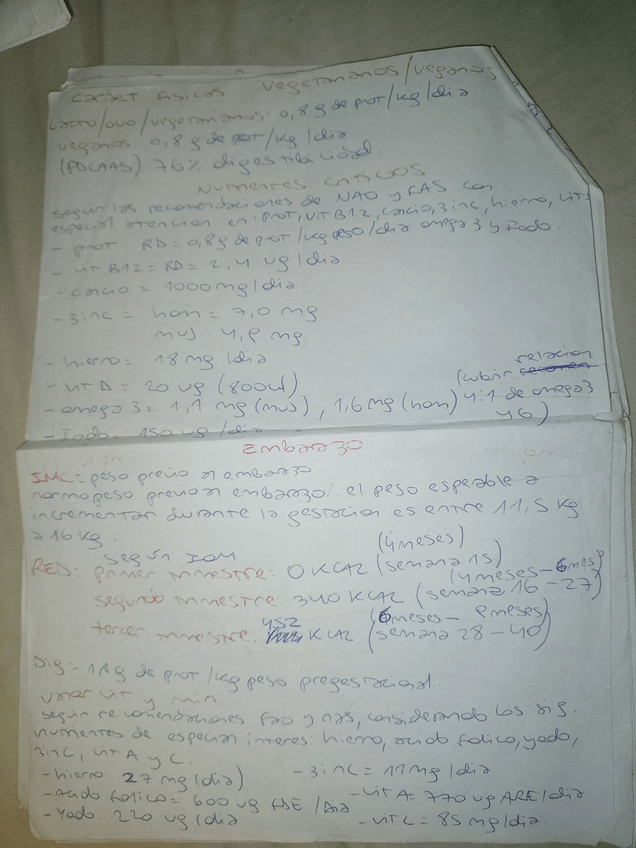 Caract fisicas vegetarianos/veganos
Lacto/ovo/vegetarianos: 0,8 g de prot/kg/dia
veganos: 0,8 g de prot/kg/dia
(PDCAAS) 76% digestibilidad.
Nutrientes criticos
según las recomendaciones de NAO y FAS con
especial atencion en: prot, vit B12, calcio, zinc, hierro, vit
- prot. RD = 0,8 g de prot/kg peso/dia omega 3 y Iodo.
- vit B12 = RD = 2,4 ug/dia
- calcio = 1000 mg/dia
- zinc = hom = 7,0 mg
muj. 4,9 mg
- hierro = 18 mg/dia
- vit D = 20 ug (800UI)
relacion
- omega 3 = 1,1 mg (muj), 1,6 mg (hom) (cubrir 4:1 de omega 3
y 6)
- Iodo = 150 ug/dia
Embarazo
IMC = peso previo al embarazo.
normopeso previo al embarazo: el peso esperable a
incrementar durante la gestacion es entre 11,5 kg
a 16 kg.
según IOM
(4 meses)
RED: primer trimestre: 0 KCAL (semana 15)
(4 meses - 6 mes)
segundo trimestre: 340 KCAL (semana 16 - 27)
452 (6 meses - 9 meses)
tercer trimestre: KCAL (semana 28 - 40)
Dig = 1,1 g de prot/kg peso pregestacional.
vit y min
según recomendaciones FAO y nas, considerando los sig.
nutrientes de especial interes: hierro, acido folico, yodo,
zinc, vit A y C.
- hierro: 27 mg (dia) - zinc = 11 mg/dia
- Acido folico = 600 ug FDE/dia - vit A = 770 ug ARE/dia
- Yodo: 220 ug/dia - vit C = 85 mg/dia.